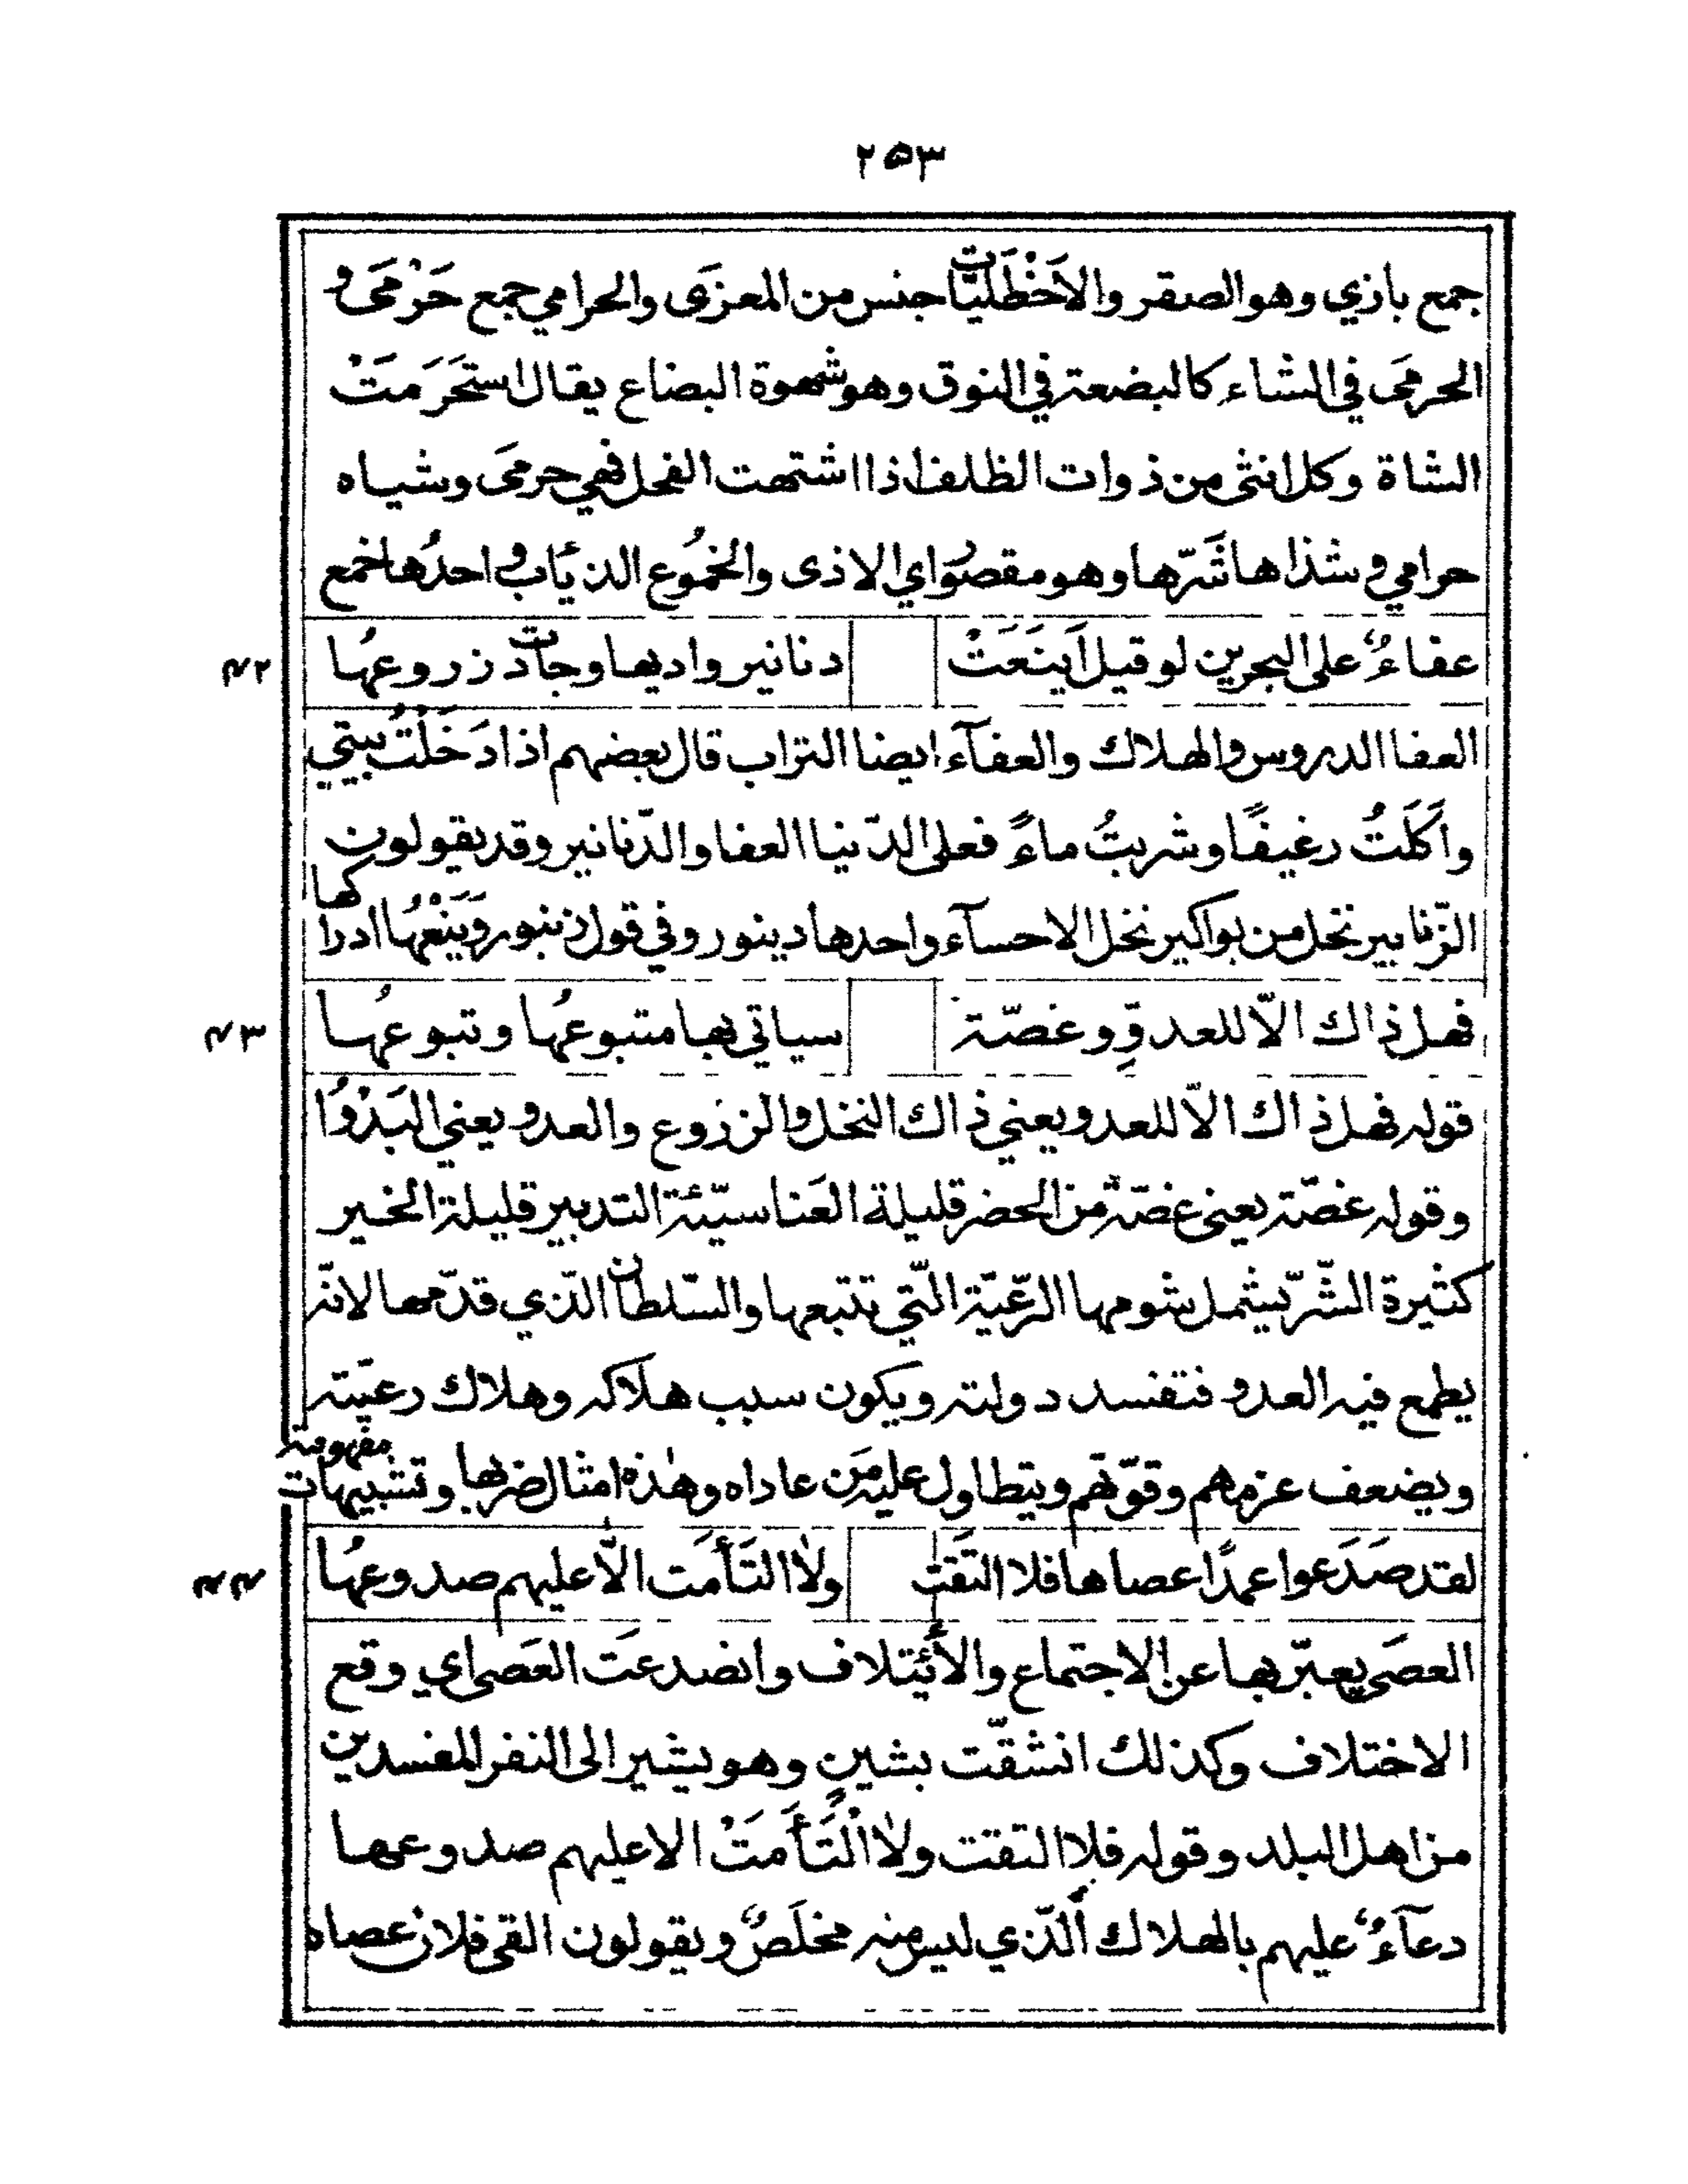 ٢٥٣
جمع بازي وهو الصقر والاَخْطَليَّات جنس من المعزَى والحرامي جمع حَرْمَى و
الحرمَى في الشاء كالبضعة في النوق وهو شهوة البضاع يقال استحَرَمَتْ
الشاة وكل انثى من ذوات الظلف اذا اشتهت الفحل فهي حرمَى وشياه
حرامي وشذاها شَرّها وهو مقصور اي الاذى والخُموع الذئاب واحدُها خمع
عفاءٌ على البحرين لو قيل اَينَعَتْ دنانير واديها وجادت زروعهُا
٤٢
العفا الدروس والهلاك والعفآء ايضا التراب قال بعضهم اذا دَخَلْتُ بيتي
واَكَلَتُ رغيفًا وشربتُ ماءً فعلى الدّنيا العفا والدّنانير وقد يقولون
الزّنابير نخل من بواكير نخل الاحسآء واحدها دينور وفي قول زنبور وَيَنْعُهَا ادراكها
فهل ذاك الاّ للعدوّ وغصّة سياتي بها متبوعهُا وتبوعهُا
٤٣
قوله فهل ذاك الاّ للعدو يعني ذاك النخل والزروع والعدو يعني البَدْوُا
وقوله غصّة يعنى غصّة من الحضر قليلة العَنا سيّئة التدبير قليلة الخير
كثيرة الشّرّ يشمل شومها الرّعيّة الّتي تتبعها والسّلطان الّذي قدّمها لانّه
يطمع فيه العدو فتفسد دولته ويكون سبب هلاكه وهلاك رعيّته
ويضعف عزمهم وقوّتهم ويتطاول عليه مَن عاداه وهٰذه امثال ضربها وتشبيهات مفهومة
لقد صَدَعوا عمدًا عصاها فلا التقَت ولا التَأَمَت الاّ عليهم صدوعهُا
٤٤
العصَى يعبّر بها عن الاجتماع والأئيتلاف وانصدعَت العَصا اي وقع
الاختلاف وكذلك انشقّت بشينٍ وهو يشير الى النفر المفسدين
من اهل البلد وقوله فلا التقت ولا الْتَأَمَتْ الا عليهم صدوعها
دعآءٌ عليهم بالهلاك الّذي ليس منه مخلَصٌ ويقولون القى فلان عصاه